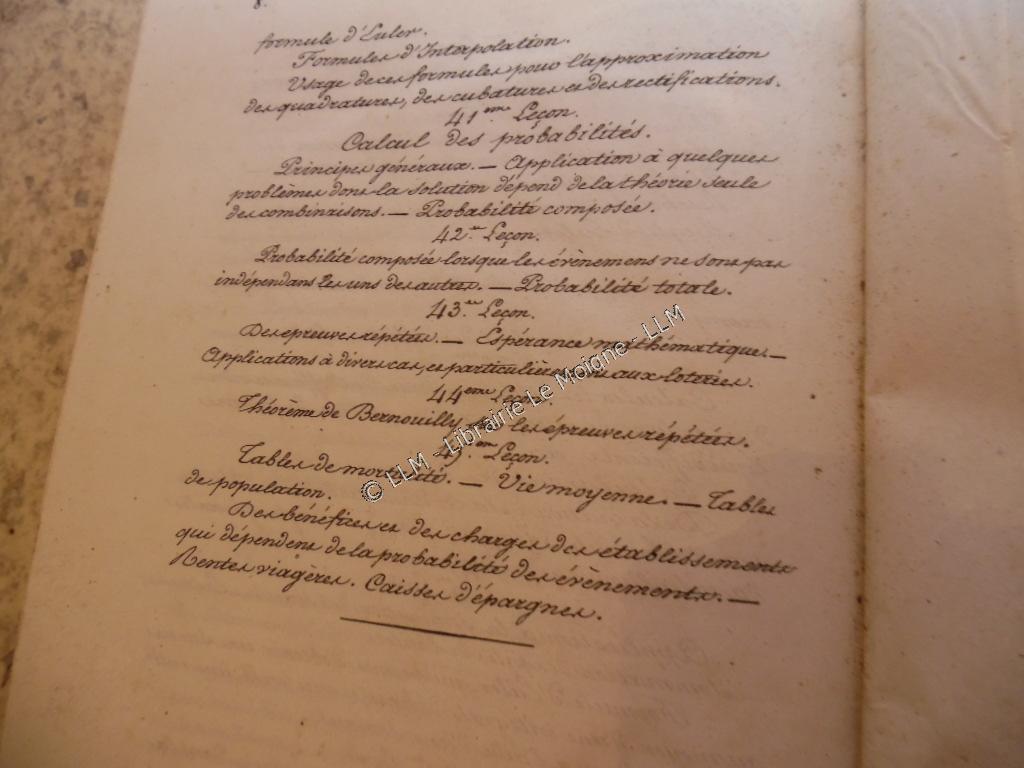 8.
formule d'Euler.
Formules d'Interpolation.
Usage de ces formules pour l'approximation
des quadratures, des cubatures et des rectifications.
41eme Leçon.
Calcul des probabilités.
Principes généraux. — Application à quelques
problêmes dont la solution dépend de la théorie seule
des combinaisons. — Probabilité composée.
42e Leçon.
Probabilité composée lorsque les évènemens ne sont pas
indépendans les uns des autres. — Probabilité totale.
43e Leçon.
Des épreuves répétées. — Espérance mathématique. —
Applications à divers cas, et particulièrement aux loteries.
44eme Leçon.
Théorème de Bernouilly les épreuves répétées.
45e Leçon.
Tables de mortalité. — Vie moyenne. — Tables
de population.
Des bénéfices et des charges des établissements
qui dépendent de la probabilité des évènements. —
Rentes viagères. Caisses d'épargnes.
© LLM - Librairie Le Moigne - LLM